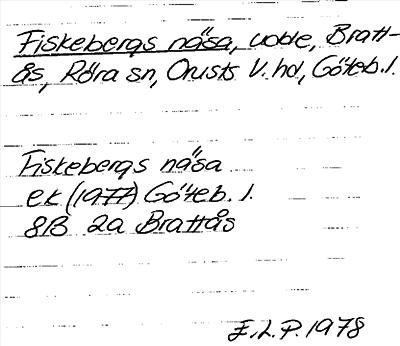 Fiskebergs näsa, udde, Bratt-
ås, Röra sn, Orusts V. hd, Göteb. l.
Fiskebergs näsa
ek (1977) Göteb. l.
8B 2a Brattås
E.L.P. 1978